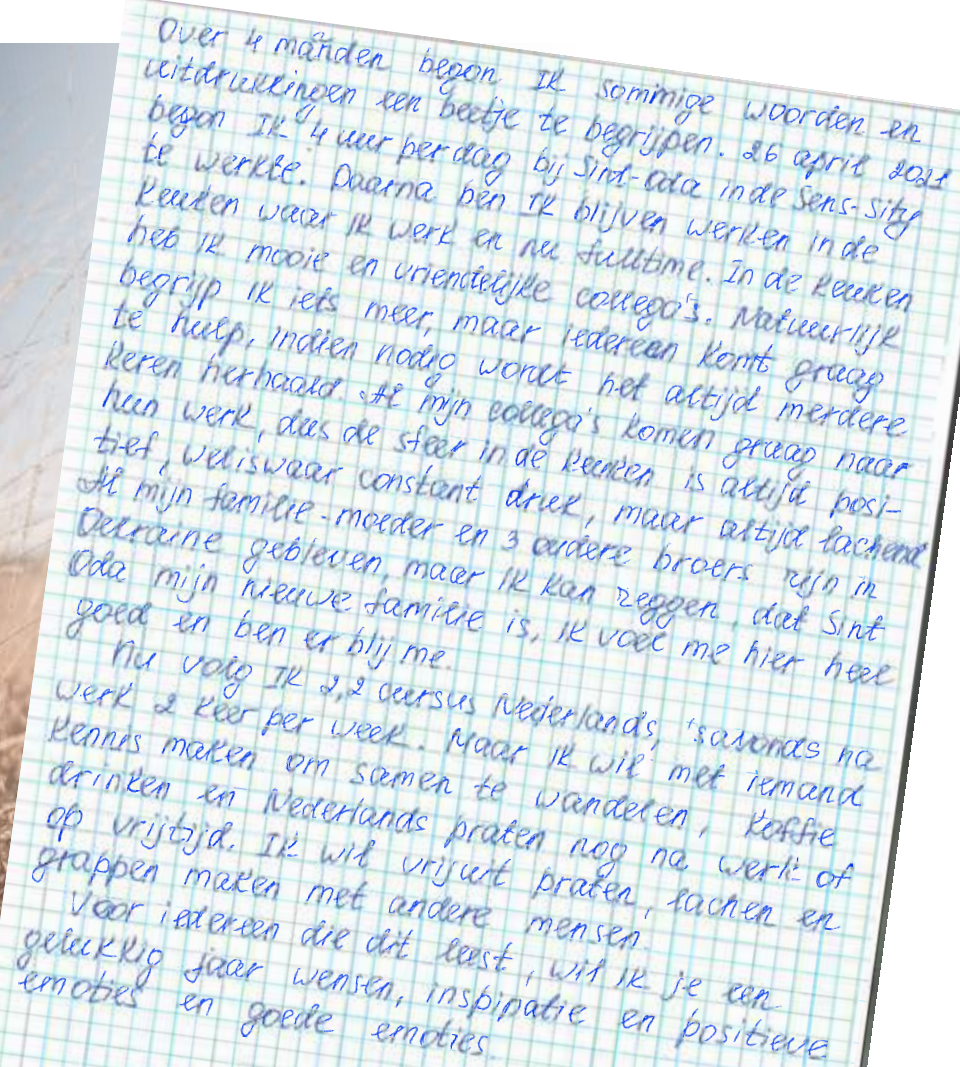 Over 4 maanden begon Ik sommige woorden en
uitdrukkingen een beetje te begrijpen. 26 april 2021
begon Ik 4 uur per dag bij Sint-Oda in de Sens-Sity
te werkte. Daarna ben Ik blijven werken in de
keuken waar Ik werk en nu fulltime. In de keuken
heb Ik mooie en vriendelijke collega's. Natuurlijk
begrijp Ik iets meer, maar iedereen komt graag
te hulp, indien nodig wordt het altijd merdere
keren herhaald. Al mijn collega's komen graag naar
hun werk, dus de sfeer in de keuken is altijd posi-
tief, weliswaar constant druk, maar altijd lachend
Al mijn familie - moeder en 3 oudere broers zijn in
Oekraine gebleven, maar Ik kan zeggen, dat Sint
Oda mijn nieuwe familie is, ik voel me hier heel
goed en ben er blij me.
Nu volg Ik 2,2 cursus Nederlands, 'savonds na
werk 2 keer per week. Maar Ik wil met iemand
kennis maken om samen te wandelen, koffie
drinken en Nederlands praten nog na werk of
op vrijtijd. Ik wil vrijuit praten, lachen en
grappen maken met andere mensen.
Voor iedereen die dit leest, wil ik je een
gelukkig jaar wensen, inspipatie en positieve
emoties en goede emoties.